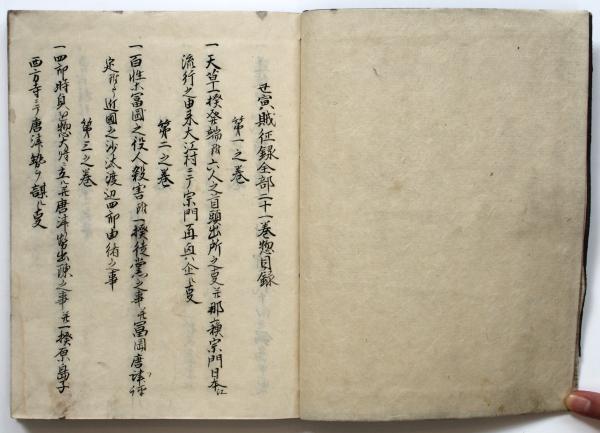 丑寅賊征録全部二十一巻惣目録
第一之巻
一天草一揆発端附六人之首頭出所之叓并那蘓宗門日本江
流行之由来大江村ニテ宗門再興ノ企之叓
第二之巻
一百姓等冨岡之役人殺害附一揆徒黨之事并冨岡唐津評
定附ゟ近国之沙汰渡辺四郎由緒之事
第三之巻
一四郎時貞を惣大将ニ立ル并唐津勢出陳之事并一揆原島子
西方寺ニテ唐津勢ヲ謀ル叓